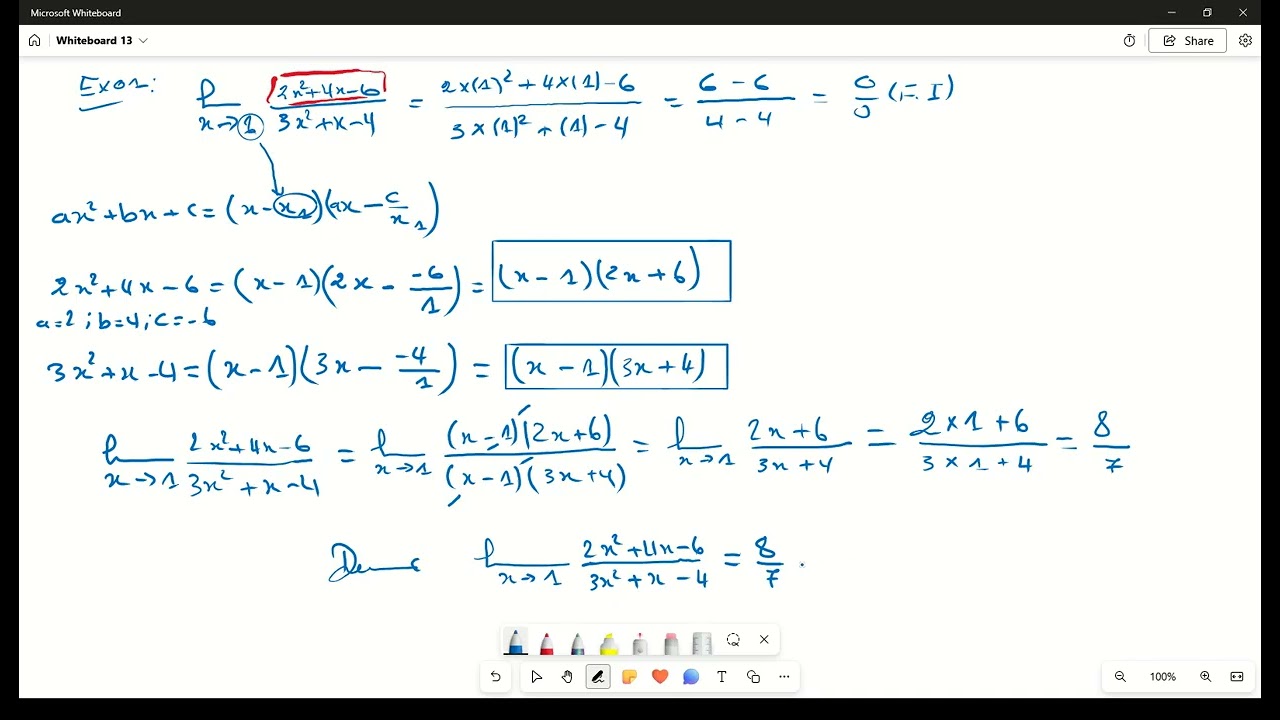 Microsoft Whiteboard
Whiteboard 13
Share
Exo1: lim x→1 (2x²+4x-6)/(3x²+x-4) = (2×(1)²+4×(1)-6)/(3×(1)²+(1)-4) = (6-6)/(4-4) = 0/0 (F.I)
ax²+bx+c=(x-x₁)(ax-c/x₁)
2x²+4x-6=(x-1)(2x-(-6)/1)=(x-1)(2x+6)
a=2;b=4;c=-6
3x²+x-4=(x-1)(3x-(-4)/1)=(x-1)(3x+4)
lim x→1 (2x²+4x-6)/(3x²+x-4) = lim x→1 ((x-1)(2x+6))/((x-1)(3x+4)) = lim x→1 (2x+6)/(3x+4) = (2×1+6)/(3×1+4) = 8/7
Donc lim x→1 (2x²+4x-6)/(3x²+x-4) = 8/7.
T
100%